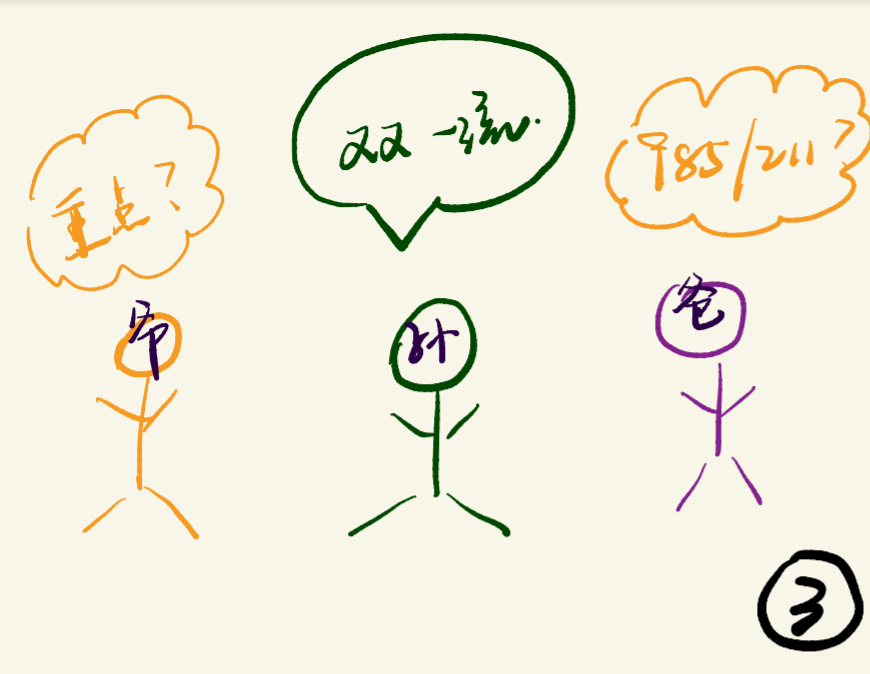 重点?
双双一流.
985/211?
爷
叶
爸
3